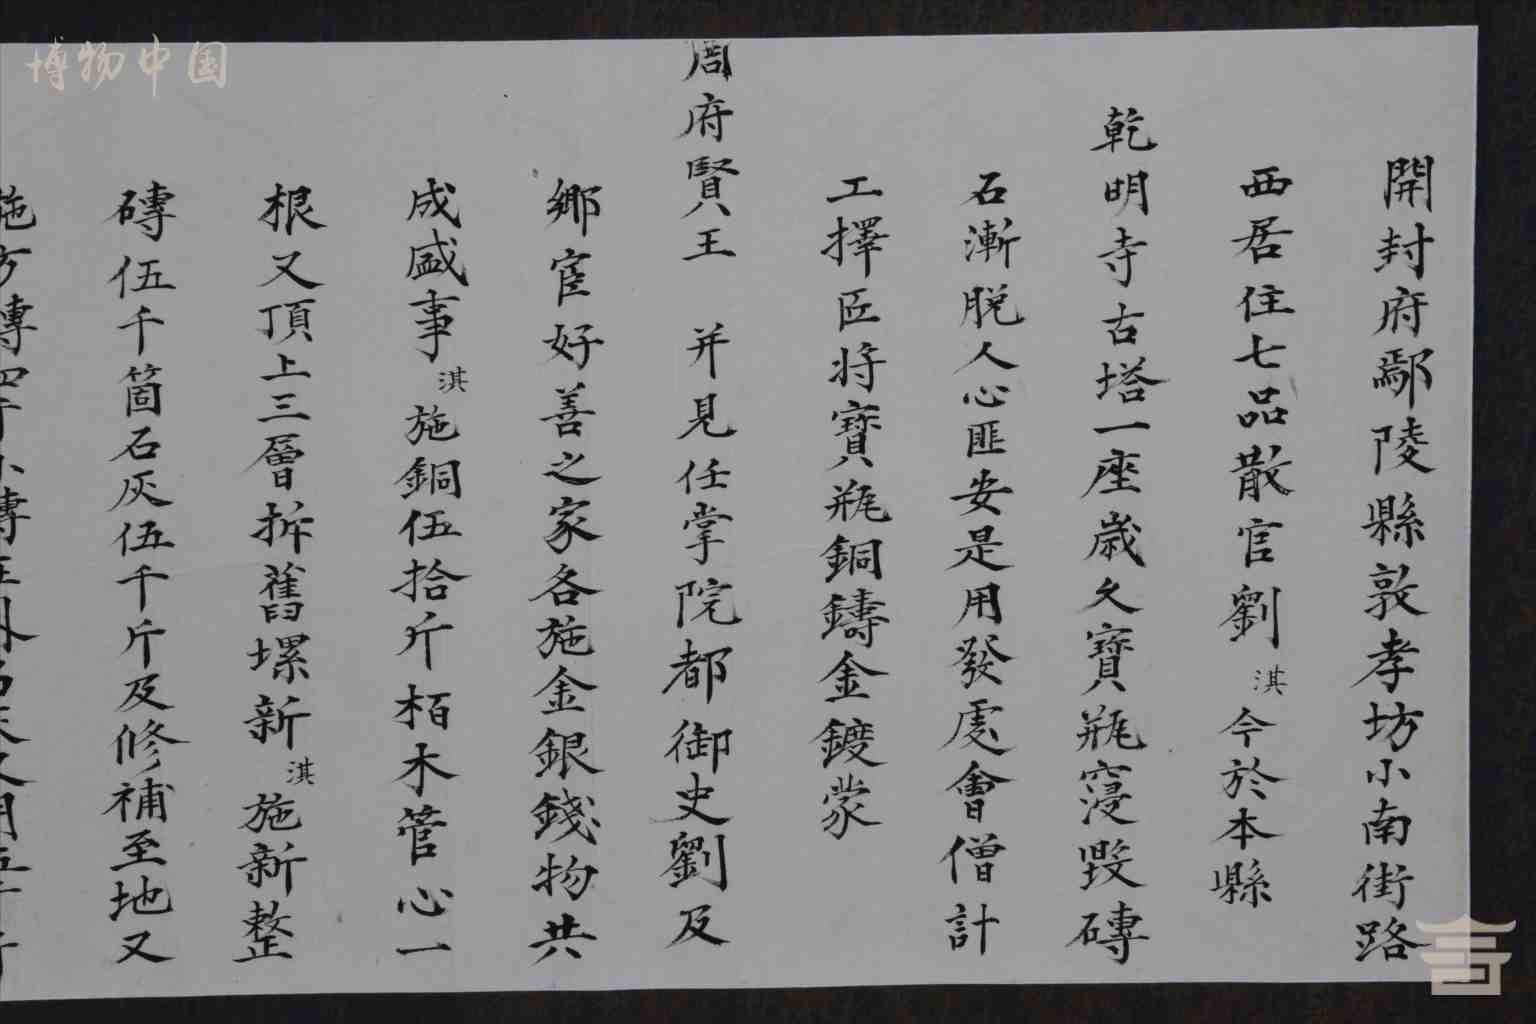 博物中国
開封府鄢陵縣敦孝坊小南街路
西居住七品散官劉淇今於本縣
乾明寺古塔一座歲久寶瓶寖毀磚
石漸脫人心匪安是用發虔會僧計
工擇匠將寶瓶銅鑄金鍍蒙
周府賢王 并見任掌院都御史劉及
鄉宦好善之家各施金銀錢物共
成盛事淇施銅伍拾斤栢木管心一
根又頂上三層拆舊壘新淇施新整
磚伍千箇石灰伍千斤及修補至地又
施方磚四千小磚